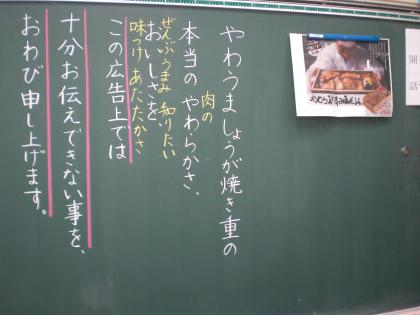 やわうましょうが焼き重の
本当のやわらかさ、
肉の
おいしさを、
ぜんぶうまみ 知りたい
味つけ あたたかさ
この広告上では
十分お伝えできない事を、
おわび申し上げます。